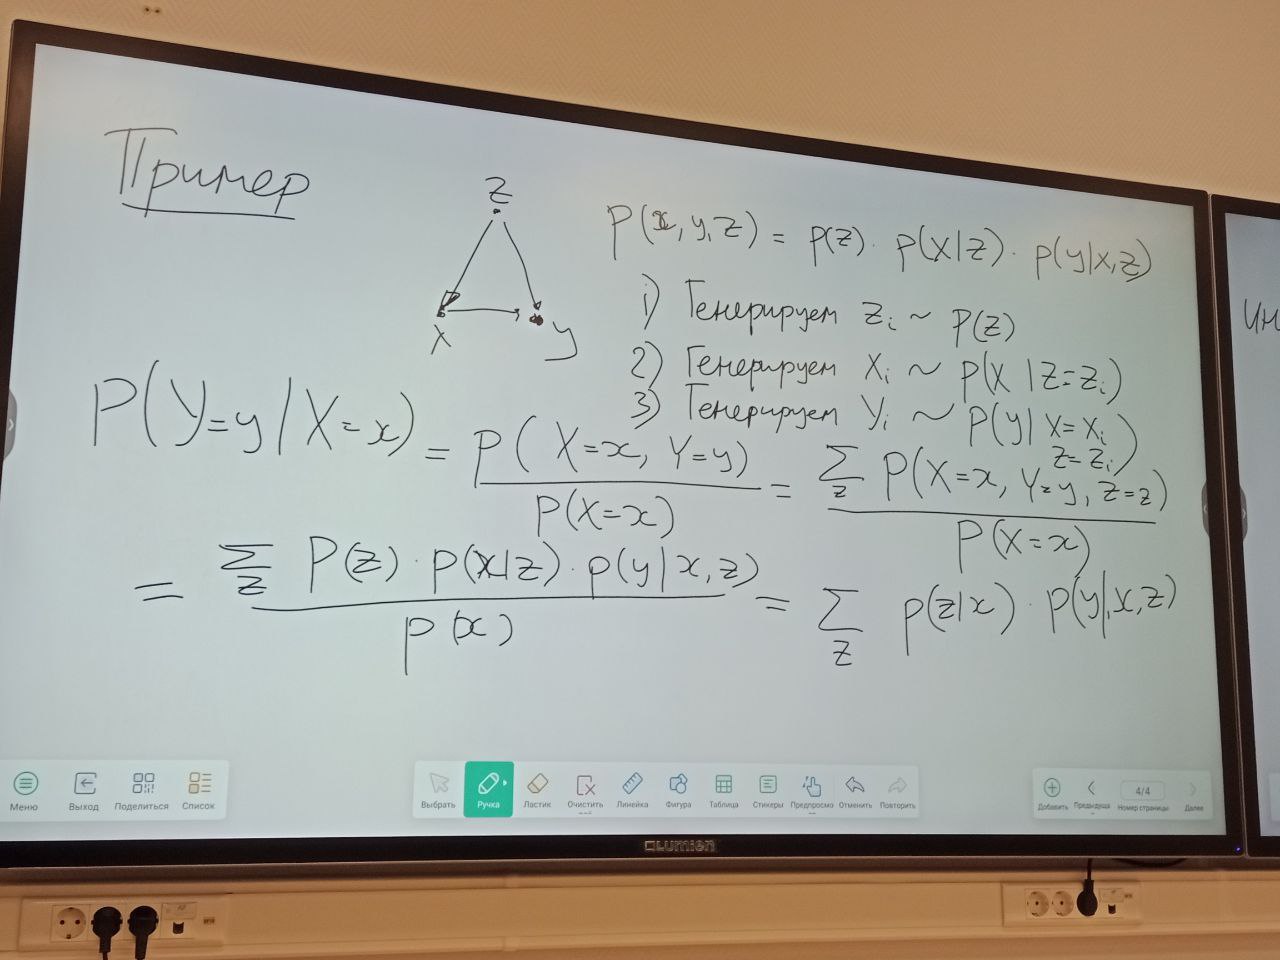 Пример
Z
X
y
P(x, y, z) = p(z) · p(x|z) · p(y|x,z)
1) Генерируем z_i ~ P(z)
2) Генерируем x_i ~ P(X | Z=z_i)
3) Генерируем y_i ~ P(y | X=x_i
Z=z_i)
P(Y=y | X=x) = P(X=x, Y=y) / P(X=x) = ∑_z P(X=x, Y=y, Z=z) / P(X=x)
= ∑_z P(z) · p(x|z) · p(y|x,z) / p(x) = ∑_z p(z|x) · p(y|x,z)
Ин
Меню
Выход
Поделиться
Список
Выбрать
Ручка
Ластик
Очистить
Линейка
Фигура
Таблица
Стикеры
Предпросмо
Отменить
Повторить
Добавить
Предыдуща
4/4
Номер страницы
Далее
Lumien